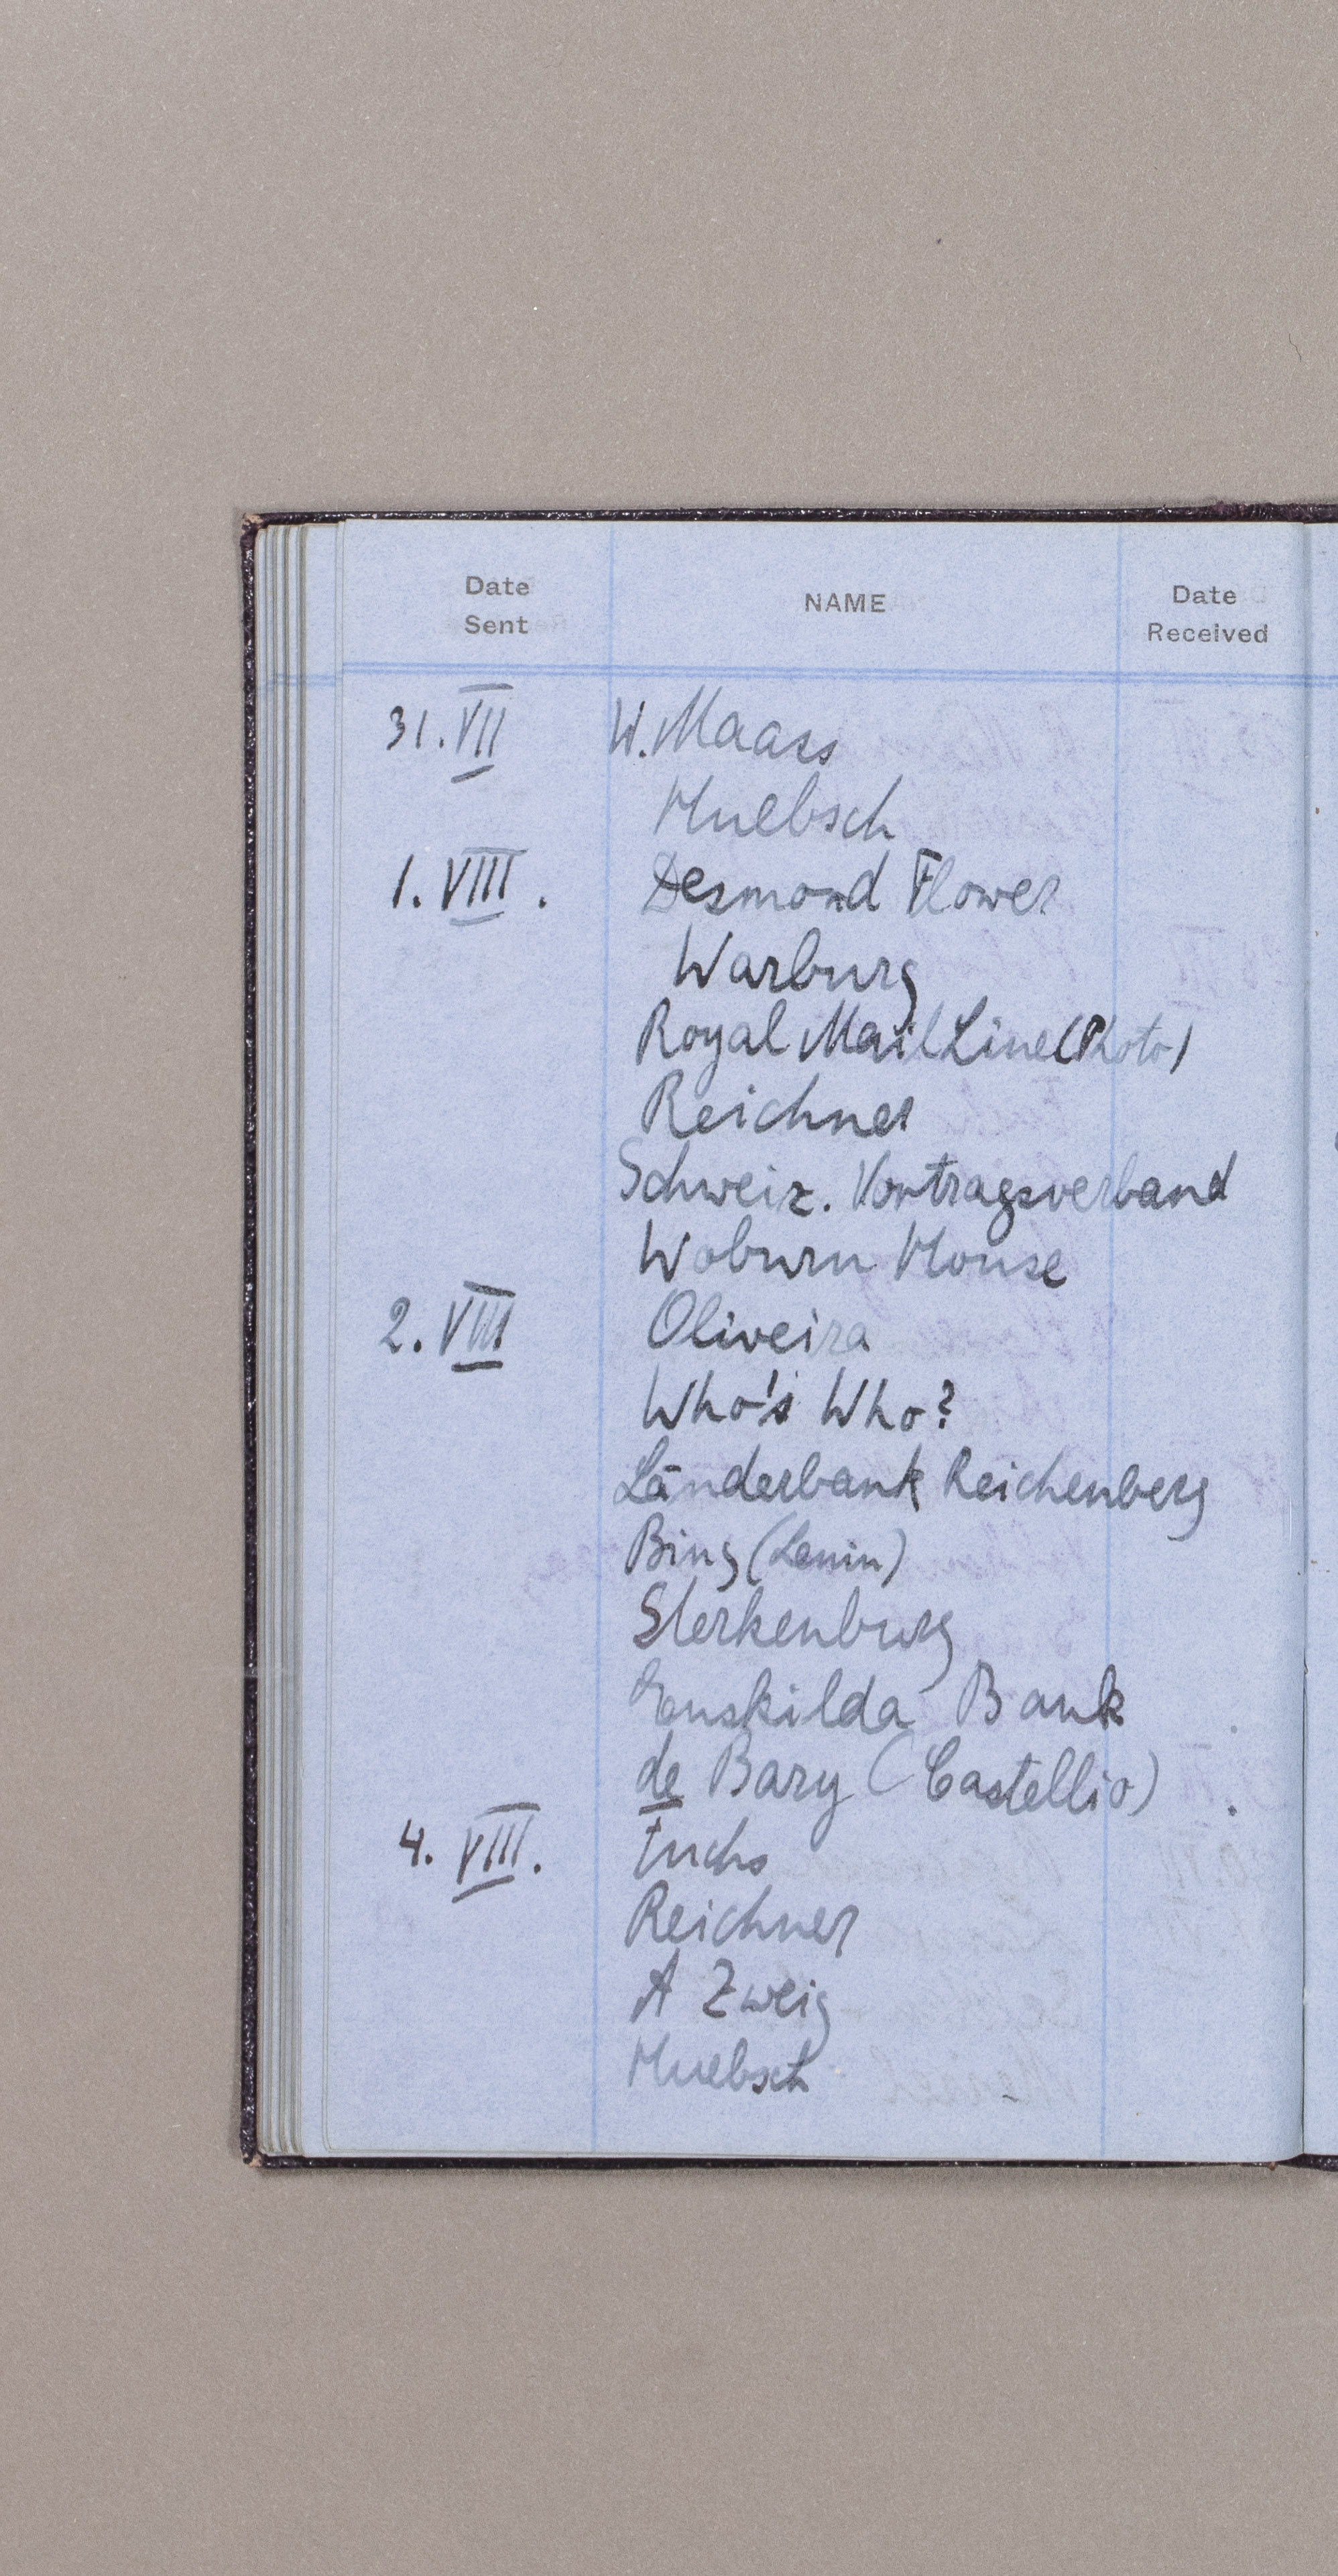 Date Sent NAME Date Received
31. VII W. Maass
Huebsch
1. VIII. Desmond Flower
Warburg
Royal Mail Line (Photo)
Reichner
Schweiz. Vortragsverband
Woburn House
2. VIII Oliveira
Who's Who?
Länderbank Reichenberg
Bing (Lenin)
Sterkenburg
Enskilda Bank
de Bary (Castellio)
4. VIII. Fuchs
Reichner
A Zweig
Huebsch